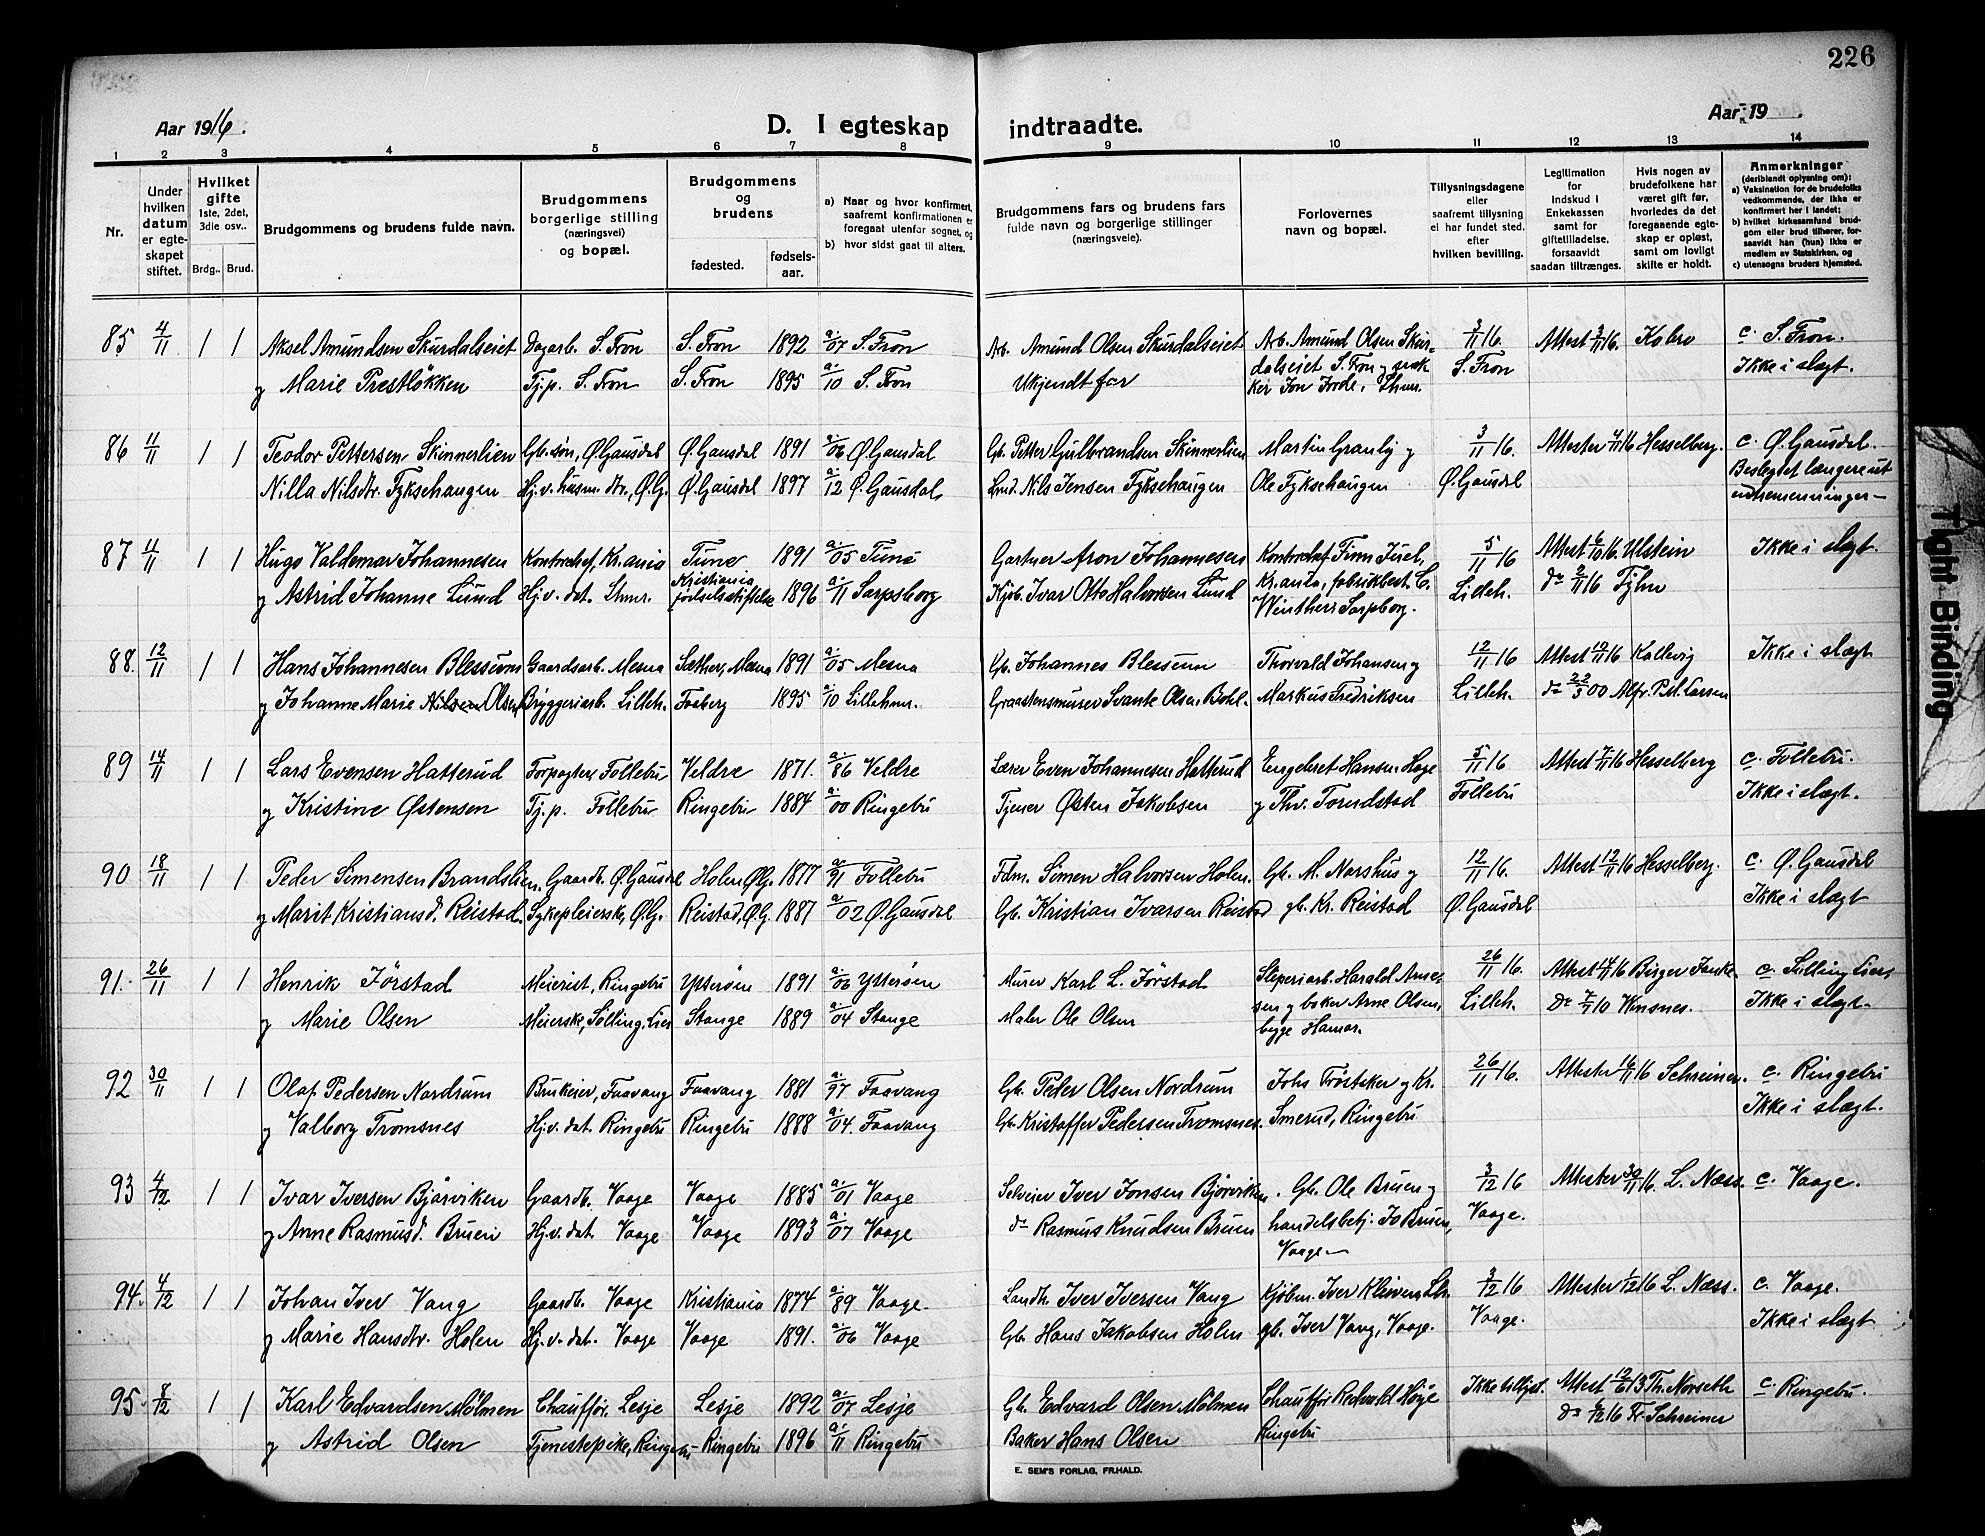 226
Aar 1916.
D. I egteskap
indtraadte.
Aar 19 .
1 2 3 4 5 6 7 8 9 10 11 12 13 14
Nr.
Under hvilken datum er egteskapet stiftet.
Hvilket gifte 1ste, 2det, 3die osv..
Brdg.. Brud.
Brudgommens og brudens fulde navn.
Brudgommens borgerlige stilling (næringsvei) og bopæl.
Brudgommens og brudens
fødested.
fødsels-aar.
a) Naar og hvor konfirmert, saafremt konfirmationen er foregaat utenfor sognet, og
b) hvor sidst gaat til alters.
Brudgommens fars og brudens fars fulde navn og borgerlige stillinger (næringsveie).
Forlovernes navn og bopæl.
Tillysningsdagene eller saafremt tillysning ei har fundet sted. efter hvilken bevilling.
Legitimation for indskud i Enkekassen samt for giftetilladelse, forsaavidt saadan tiltrænges.
Hvis nogen av brudefolkene har været gift før, hvorledes da det foregaaende egteskap er opløst, samt om lovligt skifte er holdt.
Anmerkninger (deriblandt oplysning om): a) Vaksination for de brudefolks vedkommende, der ikke er konfirmert her i landet; b) hvilket kirkesamfund brudgom eller brud tilhører, forsaavidt han (hun) ikke er medlem av Statskirken, og c) utensogns bruders hjemsted.
85 4/11 1 1 Aksel Amundsen Skurdalseiet Dagarb. S. Fron S. Fron 1892 a. 07 S. Fron Arb. Amund Olsen Skurdalseiet Arb. Amund Olsen Skur- 3/11 16. Attest 3/11 16. Kobro c. S. Fron.
og Marie Prestløkken Tj.p. S. Fron S. Fron 1895 a. 10 S. Fron Ukjendt far dalseiet S. Fron og snek- S. Fron Ikke i slægt.
ker Jon Jorde, Lhmr.
86 11/11 1 1 Teodor Pettersen Skinnerlien Gb. søn, Ø. Gausdal Ø. Gausdal 1891 a. 06 Ø. Gausdal Gb. Petter Gulbrandsen Skinnerlien Martin Granlig og 3/11 16. Attester 4/11 16 Hesselberg. c. Ø. Gausdal.
Nilla Nilsdtr. Fyksehaugen Hj.v. husm. dtr., Ø.G. Ø. Gausdal 1897 a. 12 Ø. Gausdal Nils Jensen Fyksehaugen Ole Fyksehaugen Ø. Gausdal Beslegtet længere ut
end
87 11/11 1 1 Hugo Valdemar Johannesen Kontorchef, Kr.ania Tune 1891 a. 05 Tune Gartner Aron Johannesen Kontorchef Finn Juel, 5/11 16 Attest 6/10 16. Ulstein Ikke i slægt.
og Astrid Johanne Lund Hj.v. dat. Lhmr. Kristiania fødselsstiftelse 1896 a. 11 Sarpsborg Kjøb. Ivar Otto Halvorsen Lund Kr.ania, fabrikbest. C. Lilleh. do 2/11 16
Winther Sarpsborg.
88. 12/11 1 1 Hans Johannesen Blessum Gaardsarb. Mesna Sæther, Mesna 1891 a. 05 Mesna Gb. Johannes Blessum Thorvald Johansen og 12/11 16 Attest 12/11 16 Kallevig Ikke i slægt
og Johanne Marie Olsen Bryggeriarb. Lilleh. Faaberg 1895 a. 10 Lillehmr. Graastensmurer Svante Olsen Bohl. Markus Fredriksen Lilleh. do 22/5 00 Alfr. P. M. Larsen
89 14/11 1 1 Lars Evensen Hatterud Forpagter, Follebu Veldre 1871. a. 86 Veldre Lærer Even Johannesen Hatterud Engebret Hansen Hage 5/11 16 Attest 7/11 16 Hesselberg c. Follebu.
og Kristine Østensen Tj.p. Follebu Ringebu 1884 a. 00 Ringebu Tjener Østen Jakobsen og Thv. Tomdstad Follebu Ikke i slægt.
90 18/11 1 1 Peder Simensen Brandslien. Gaardb. Ø. Gausdal Holen Ø.G. 1877 a. 91 Follebu Fdm. Simen Halvorsen Holen. Gb. M. Narshus og 12/11 16. Attest 12/11 16 Hesselberg. c. Ø. Gausdal
og Marit Kristiansd. Reistad. Sykepleierske, Ø.G. Reistad, Ø.G. 1887 a. 02 Ø. Gausdal Gb. Kristian Ivarsen Reistad gb. Kr. Reistad Ø. Gausdal Ikke i slægt
91. 26/11 1 1 Henrik Jørstad Meierist, Ringebu Ytterøen 1891 a. 06 Ytterøen Murer Karl L. Jørstad Sliperiarb. Harald Arne- 26/11 16. Attest 14/11 16 Birger c. Sølling Lier
og Marie Olsen Meierske, Sølling, Lier Stange 1889 a. 04 Stange Maler Ole Olsen sen og baker Arne Olsen, Lilleh. do 7/7 10 Ikke i slægt.
begge Hamar.
92 30/11 1 1 Olaf Pedersen Nordrum Brukeier, Faavang Faavang 1881 a. 97 Faavang Gb. Peder Olsen Nordrum Johs Frøstaker og Kr. 26/11 16. Attester 16/11 16 Schreiner. c. Ringebu
og Valborg Tromsnes Hj.v. dat. Ringebu Ringebu 1888 a. 04. Faavang Gb. Kristoffer Pedersen Tromsnes. Smerud, Ringebu Ikke i slægt.
93 4/12 1 1 Ivar Iversen Bjørviken Gaardb. Vaage Vaage 1885 a. 01 Vaage Selveier Iver Jonsen Bjørviken. Gb. Ole Bruen og 3/12 16 Attester 30/11 16. L. Næss. c. Vaage.
og Anne Rasmusd. Bruen Hj.v. dat. Vaage Vaage 1893 a. 07 Vaage do Rasmus Knudsen Bruen handelsbetj. Jo Bruen, Vaage.
Vaage
94. 4/12 1 1 Johan Iver Vang Gaardb. Vaage Kristiania 1874 a. 89 Vaage. Landh. Iver Iversen Vang Kjøbm. Iver Kleiven, Lh. 3/12 16 Attester 1/12 16 L. Næss. c. Vaage.
og Marie Hansdtr. Holen Hj.v. dat. Vaage Vaage 1891. a. 06 Vaage Gb. Hans Jakobsen Holen gb. Iver Vang, Vaage. Vaage. Ikke i slægt
95. 8/12 1 1 Karl Edvardsen Mølmen Chauffør, Lesje Lesje 1892 a. 07 Lesje Gb. Edvard Olsen Mølmen Chauffør Redvald Høye Ikke tillyst. Attest 12/6 13 Th. Norseth c. Ringebu.
og Astrid Olsen Tjenestepike, Ringebu Ringebu 1896 a. 11 Ringebu Baker Hans Olsen Ringebu do 8/12 16 Fr. Schreiner
E. SEM'S FORLAG, FR.HALD.
Tight Binding